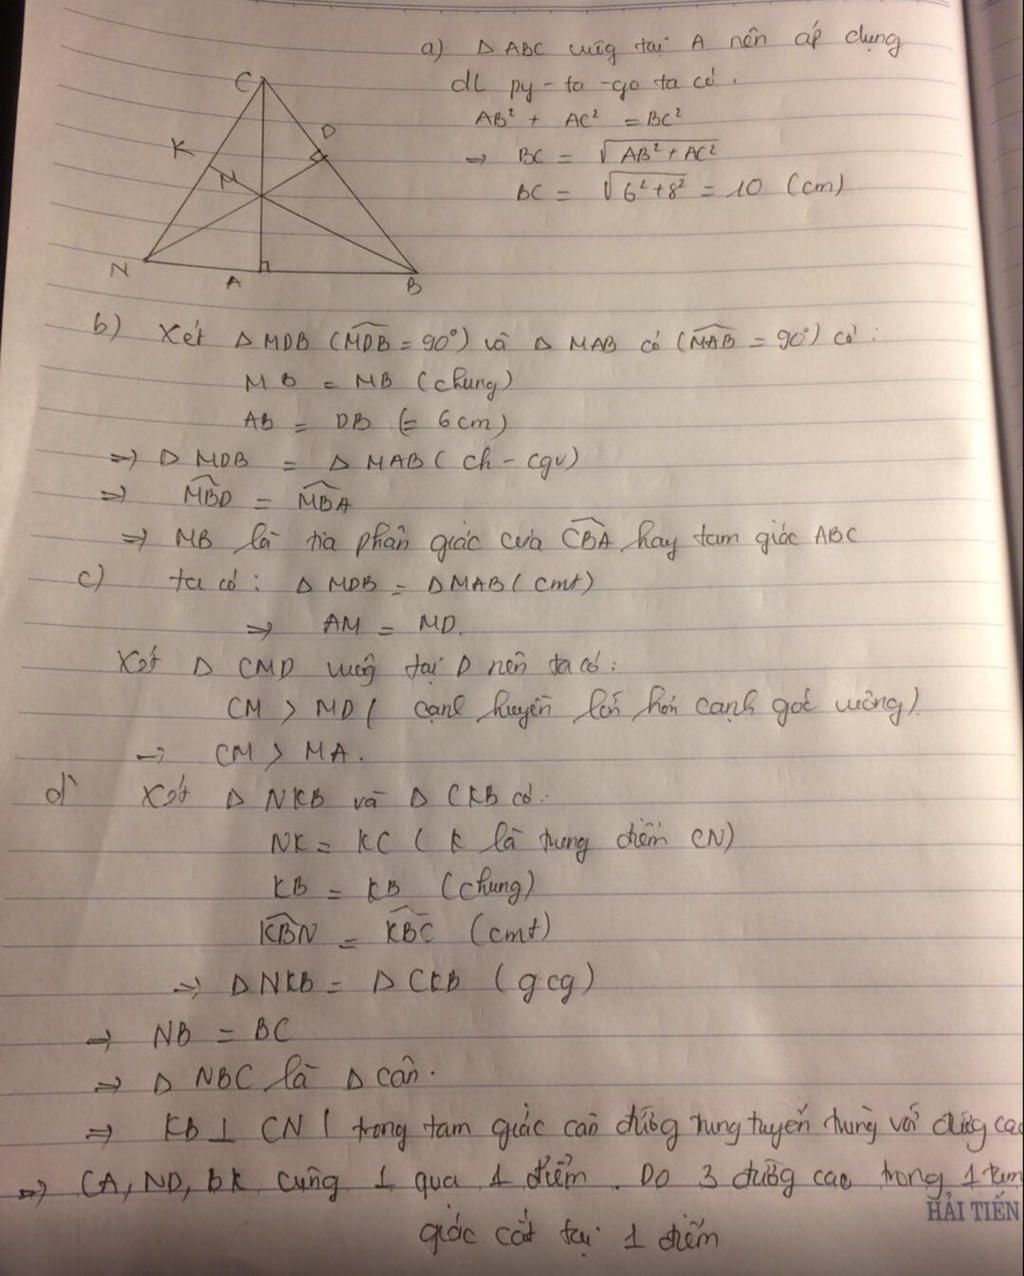 a) Δ ABC vuông tại A nên áp dụng
đL py-ta-go ta có:
AB² + AC² = BC²
⇒ BC = √AB²+AC²
BC = √6²+8² = 10 (cm)
C
D
K
M
N
A
B
b) Xét Δ MDB (MDB = 90°) và Δ MAB có (MAB = 90°) có:
MB = MB (chung)
AB = DB (= 6cm)
⇒ Δ MDB = Δ MAB (ch - cgv)
⇒ MBD = MBA
⇒ MB là tia phân giác của CBA hay tam giác ABC
c) ta có: Δ MDB = Δ MAB (cmt)
⇒ AM = MD.
Xét Δ CMD vuông tại D nên ta có:
CM > MD ( cạnh huyền lớn hơn cạnh góc vuông)
⇒ CM > MA.
d) Xét Δ NKB và Δ CKB có:
NK = KC ( K là trung điểm CN)
KB = KB (chung)
KBN = KBC (cmt)
⇒ Δ NKB = Δ CKB (gcg)
⇒ NB = BC
⇒ Δ NBC là Δ cân.
⇒ KB ⊥ CN ( trong tam giác cân đường trung tuyến trùng với đường cao
⇒ CA, ND, BK cùng 1 qua 1 điểm. Do 3 đường cao trong 1 tam
HẢI TIẾN
giác cắt tại 1 điểm